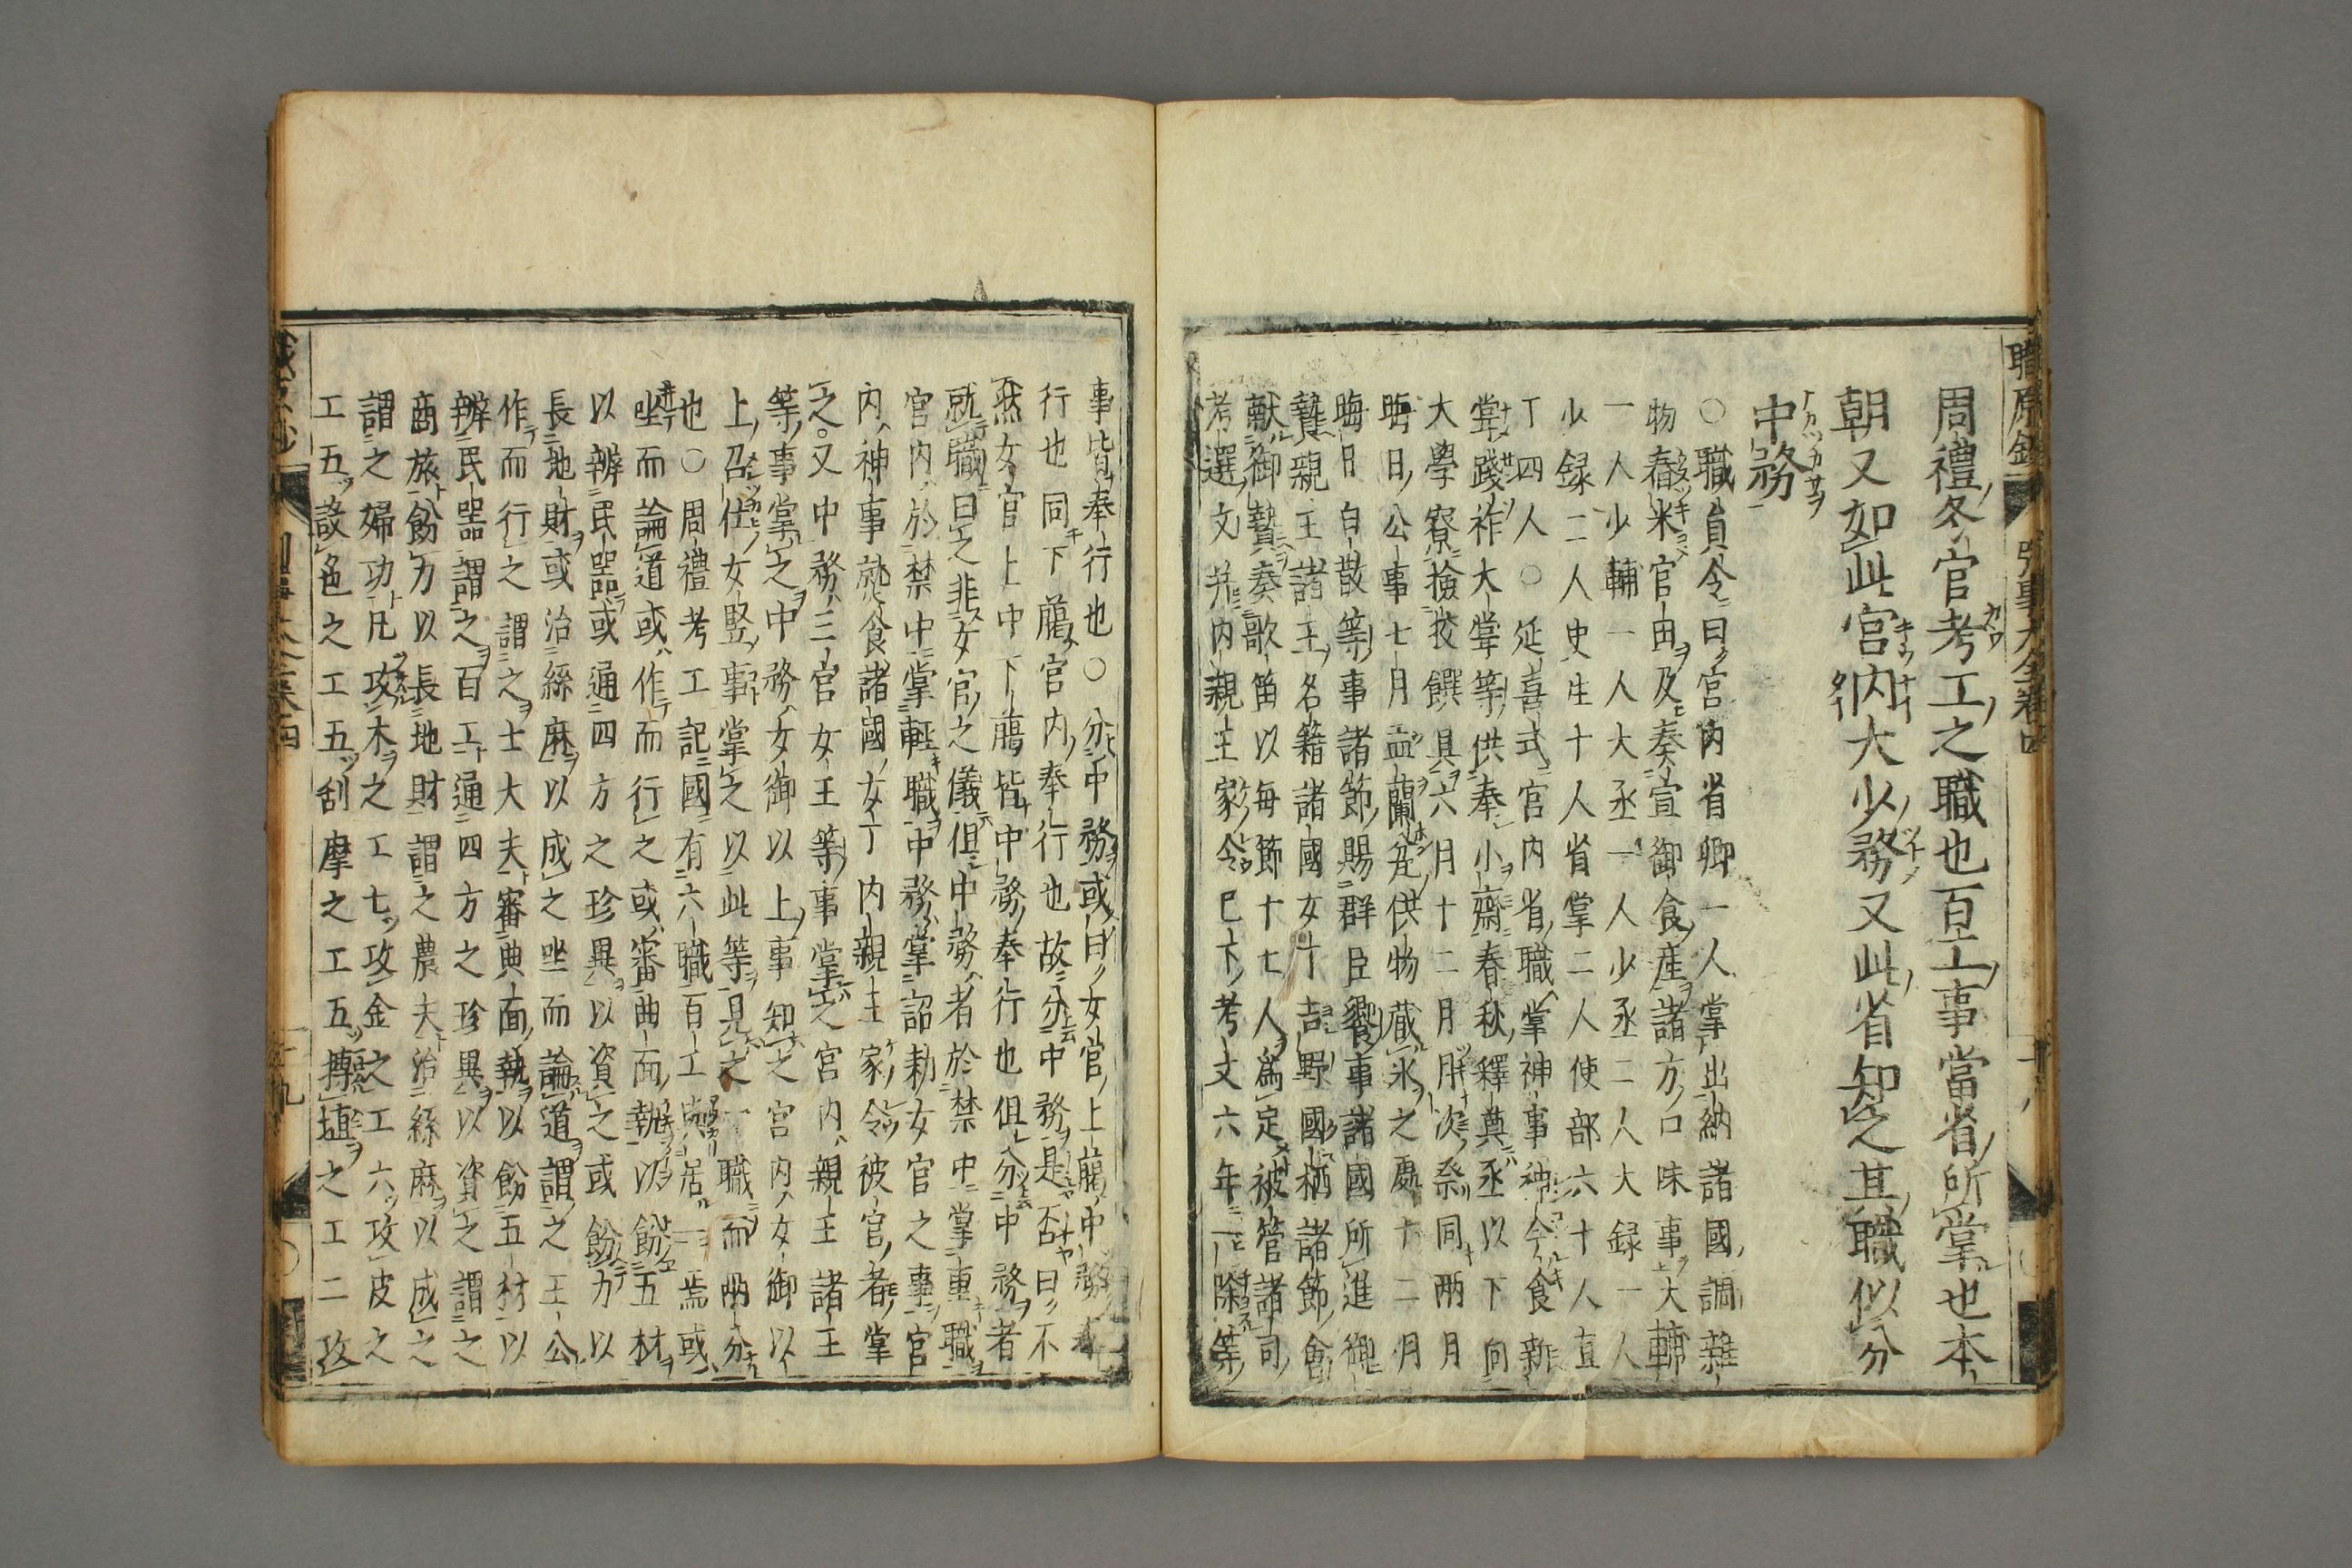 周禮冬官考工之職也百工事當省所掌也本
朝又如此宮内大少務又此省知之其職似分
中務
○職員令曰宮内省卿一人掌出納諸國調雜
物舂米官田及奏宣御食產諸方口味事大輔
一人少輔一人大丞一人少丞二人大録一人
少録二人史生十人省掌二人使部六十人直
丁四人○延喜式宮内省職掌神事神今食新
甞踐祚大甞等供奉小齋春秋釋奠丞以下向
大學寮撿挍饌具六月十二月 次祭同兩月
晦日公事七月盂蘭盆供物蔵氷之處十二月
晦日白散等事諸節賜群臣饗事諸國所進御
贄親王諸王名籍諸國女丁吉野國栖諸節會
献御贄奏歌笛以每節十七人為定被管諸司
考選文并内親王家令已下考文六年一除等
事皆奉行也○分中務或曰女官上﨟中務奉
行也同下﨟官内奉行也故分中務是否曰不
然女官上中下﨟皆中務奉行也但分中務者
就職曰之非女官之儀但中務者於禁中掌重職
宮内於禁中掌輕職中務掌詔勅女官之事官
内神事就食諸國女丁内親王家令被官者掌
之又中務三官女王等事掌之宮内親王諸王
等事掌之中務女御以上事知之宮内女御以
上召仕女竪事掌之以此等見之一職而兩分
也○周禮考工記國有六職百工與居一焉或
坐而論道或作而行之或審曲面執以飭五材
以辨民器或通四方之珍異以資之或飭力以
長地財或治絲麻以成之坐而論道謂之王公
作而行之謂之士大夫審曲面執以飭五材以
辨民器謂之百工通四方之珍異以資之謂之
商旅飭力以長地財謂之農夫治絲麻以成之
謂之婦功凡攻木之工七攻金之工六攻皮之
工五設色之工五刮摩之工五摶埴之工二攻